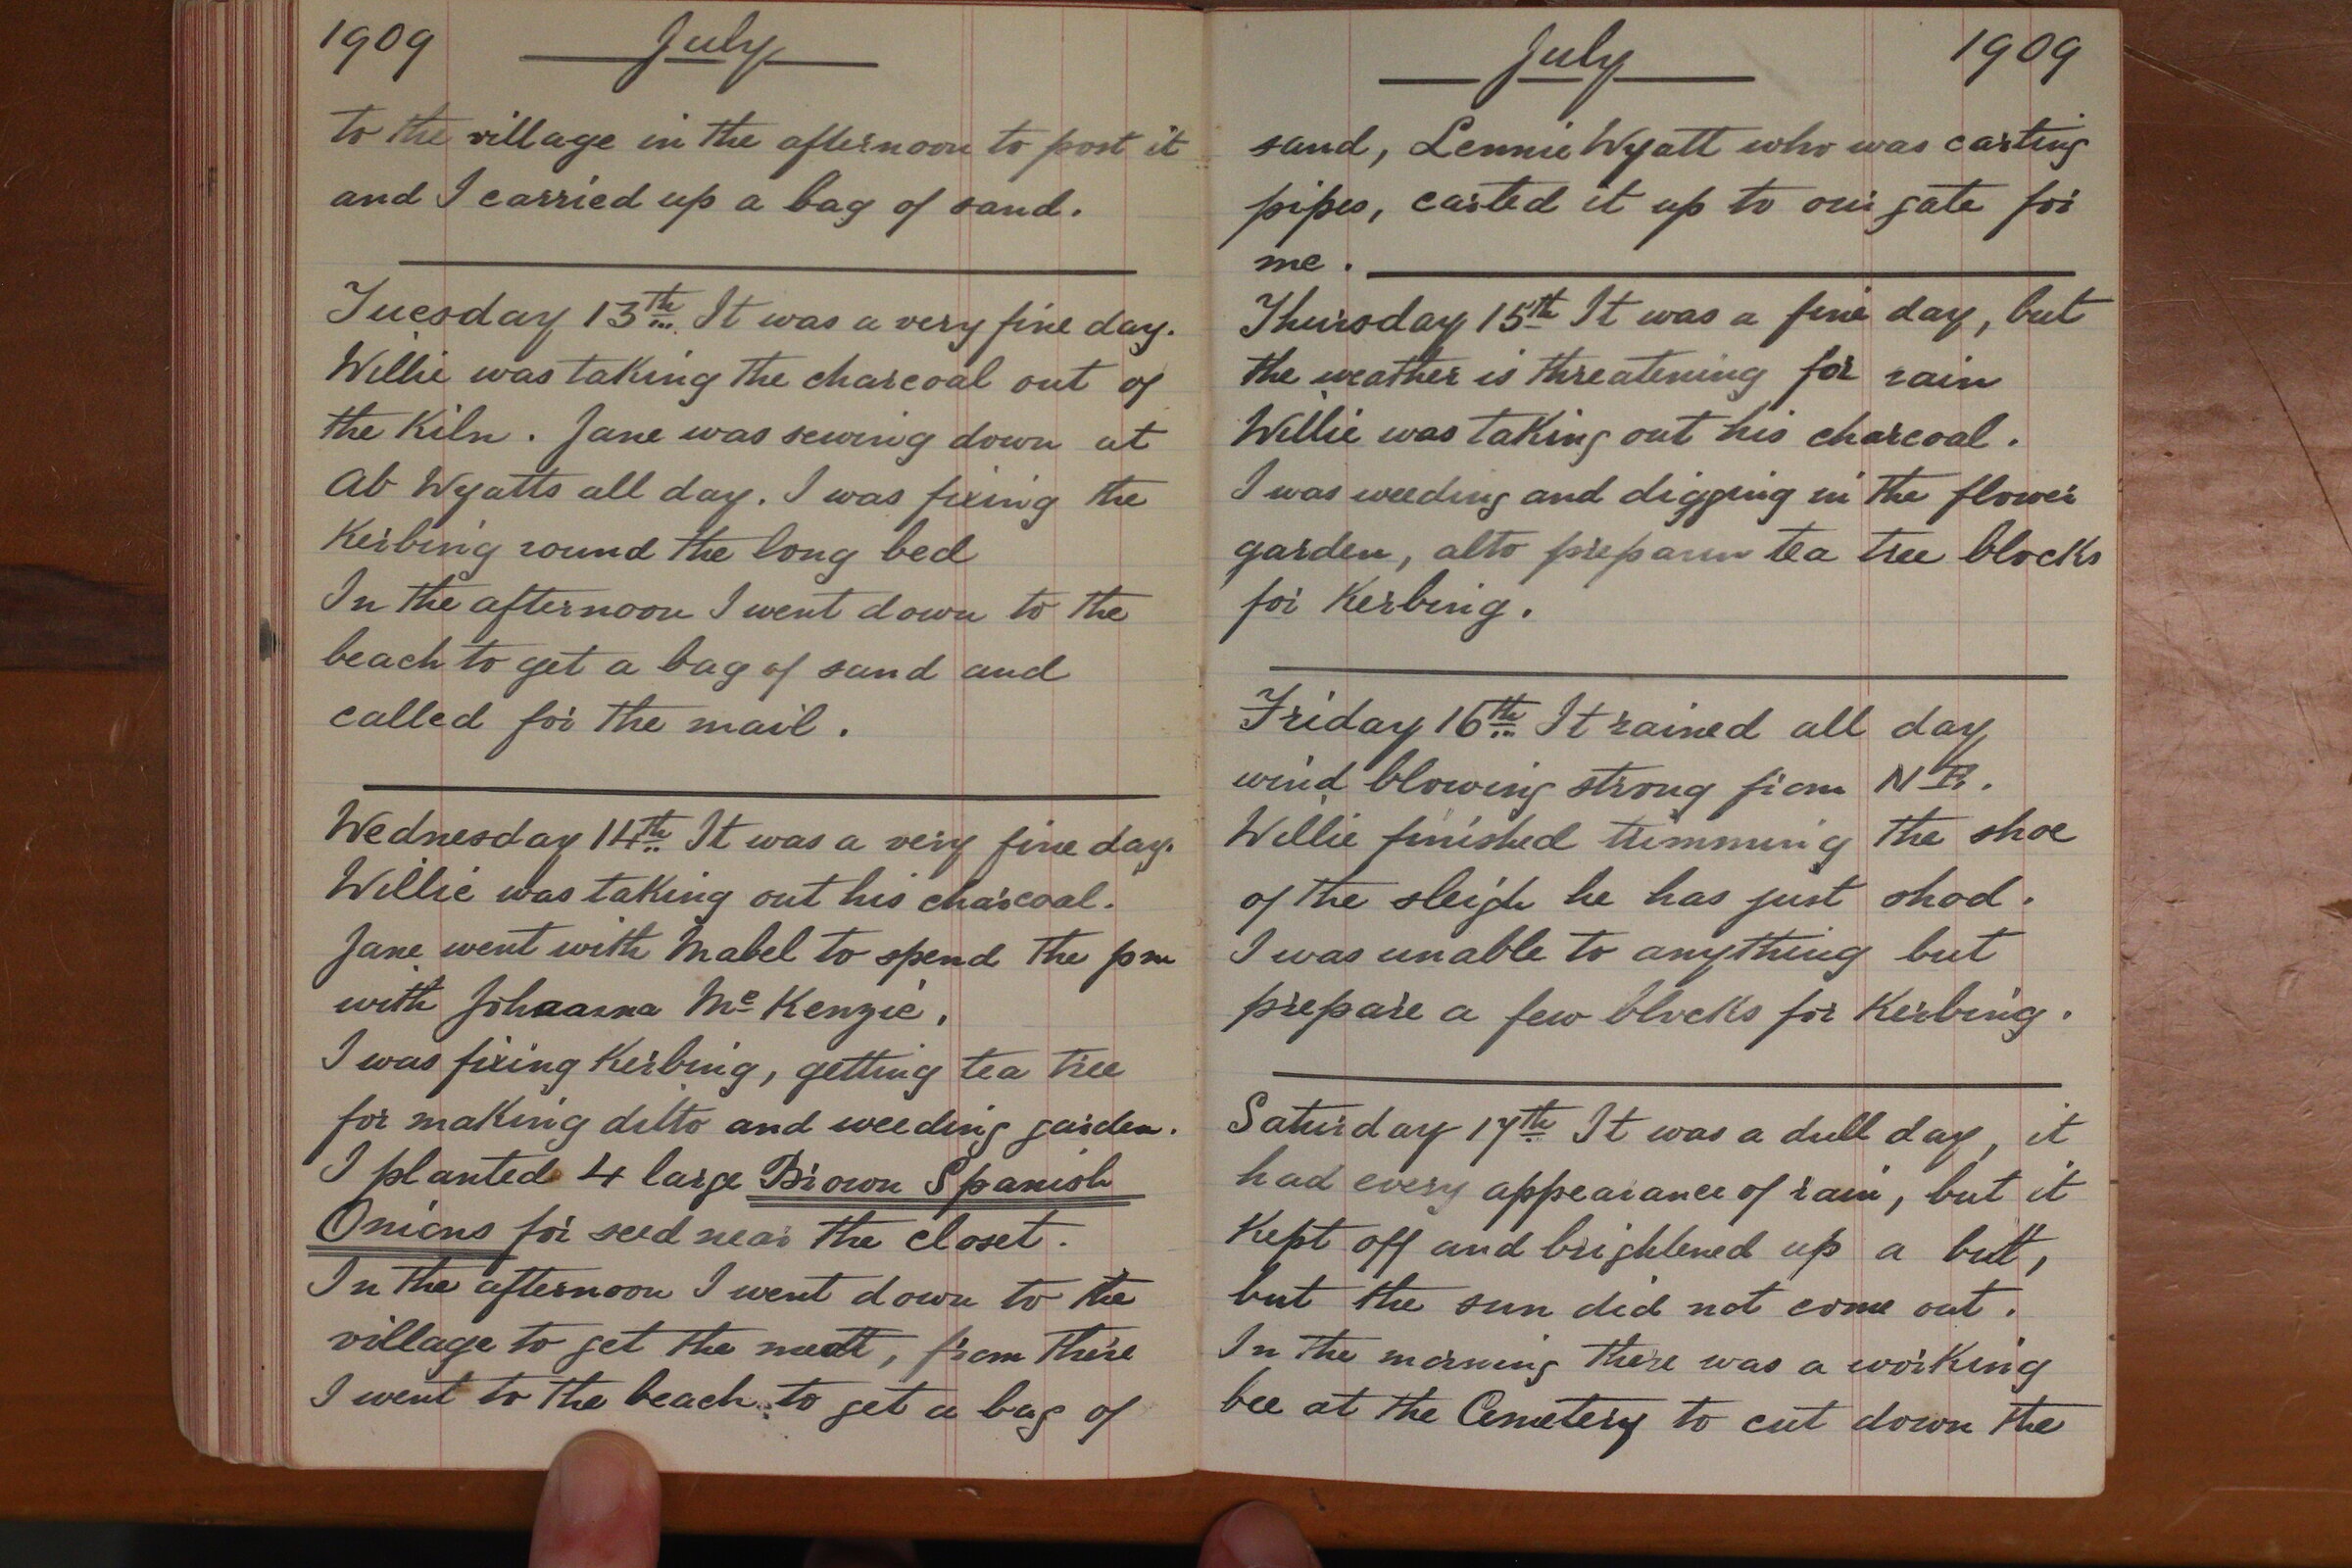 1909 July
to the village in the afternoon to post it
and I carried up a bag of sand.
Tuesday 13th It was a very fine day.
Willie was taking the charcoal out of
the Kiln. Jane was sewing down at
Ab Wyatts all day. I was fixing the
Kerbing round the long bed
In the afternoon I went down to the
beach to get a bag of sand and
called for the mail.
Wednesday 14th It was a very fine day.
Willie was taking out his charcoal.
Jane went with Mabel to spend the pm
with Johaanna Mc Kenzie.
I was fixing Kerbing, getting tea tree
for making ditto and weeding garden.
I planted 4 large Brown Spanish
Onions for seed near the closet.
In the afternoon I went down to the
village to get the meat, from there
I went to the beach to get a bag of
July 1909
sand, Lennie Wyatt who was carting
pipes, carted it up to our gate for
me.
Thursday 15th It was a fine day, but
the weather is threatening for rain
Willie was taking out his charcoal.
I was weeding and digging in the flower
garden, also tea tree blocks
for Kerbing.
Friday 16th It rained all day
wind blowing strong from N E.
Willie finished trimming the shoe
of the sleigh he has just shod.
I was unable to anything but
prepare a few blocks for Kerbing.
Saturday 17th It was a dull day, it
had every appearance of rain, but it
Kept off and brightened up a bitt,
but the sun did not come out.
In the morning there was a working
bee at the Cemetery to cut down the